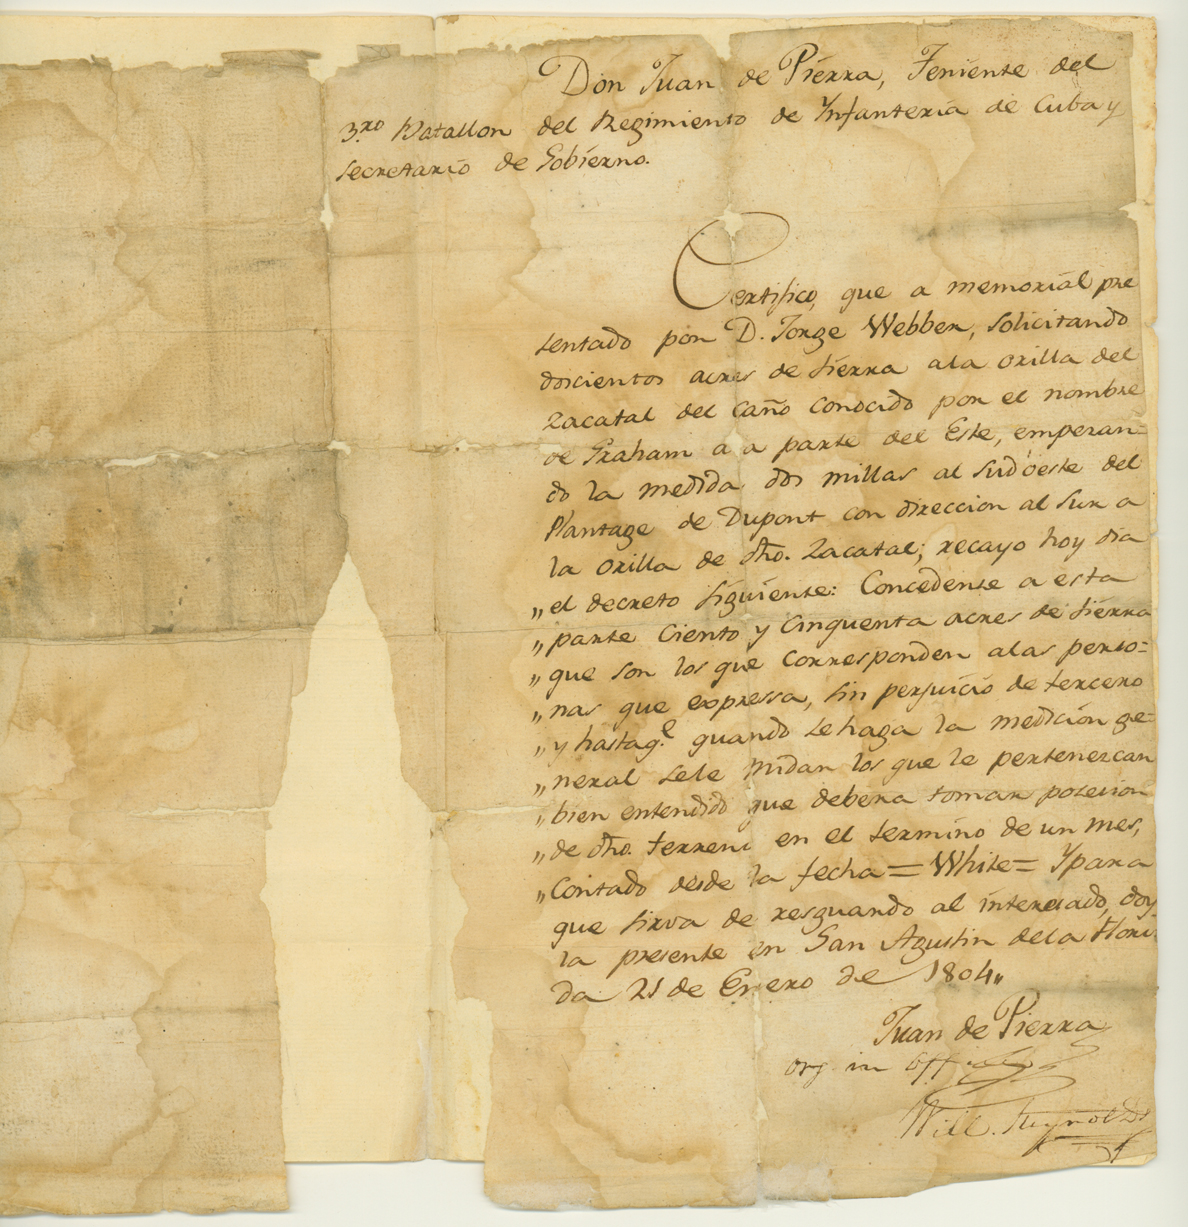 Don Juan de Pierra, Teniente del
3.ro Batallon del Regimiento de Ynfanteria de Cuba y
Secretario de Gobierno.
Certifico, que a memorial pre
sentado por D. Jorge Webber, solicitando
doscientos acres de tierra ala orilla del
Zacatal del caño conocido por el nombre
de Graham a a parte del Este, empezan=
do la medida dos millas al sudoeste del
Plantage de Dupont con direccion al Sur a
la orilla de dho. Zacatal; recayo hoy dia
„el decreto siguiente: Concedense a esta
„parte Ciento y Cinquenta acres de tierra
„que son los que corresponden alas perso=
„nas que expressa, sin perjuicio de tercero
„y hastaq.e quando se haga la medicion ge=
„neral sele midan los que le pertenezcan
„bien entendido que debera tomar posecion
„de dho. terreno en el termino de un mes,
„Contado desde la fecha = White = Ypara
que sirva de resguardo al interesado, doy
la presente en San Agustin dela Flori=
da 21 de Enero de 1804„
Juan de Pierra
org in Office
Will. Reynolds